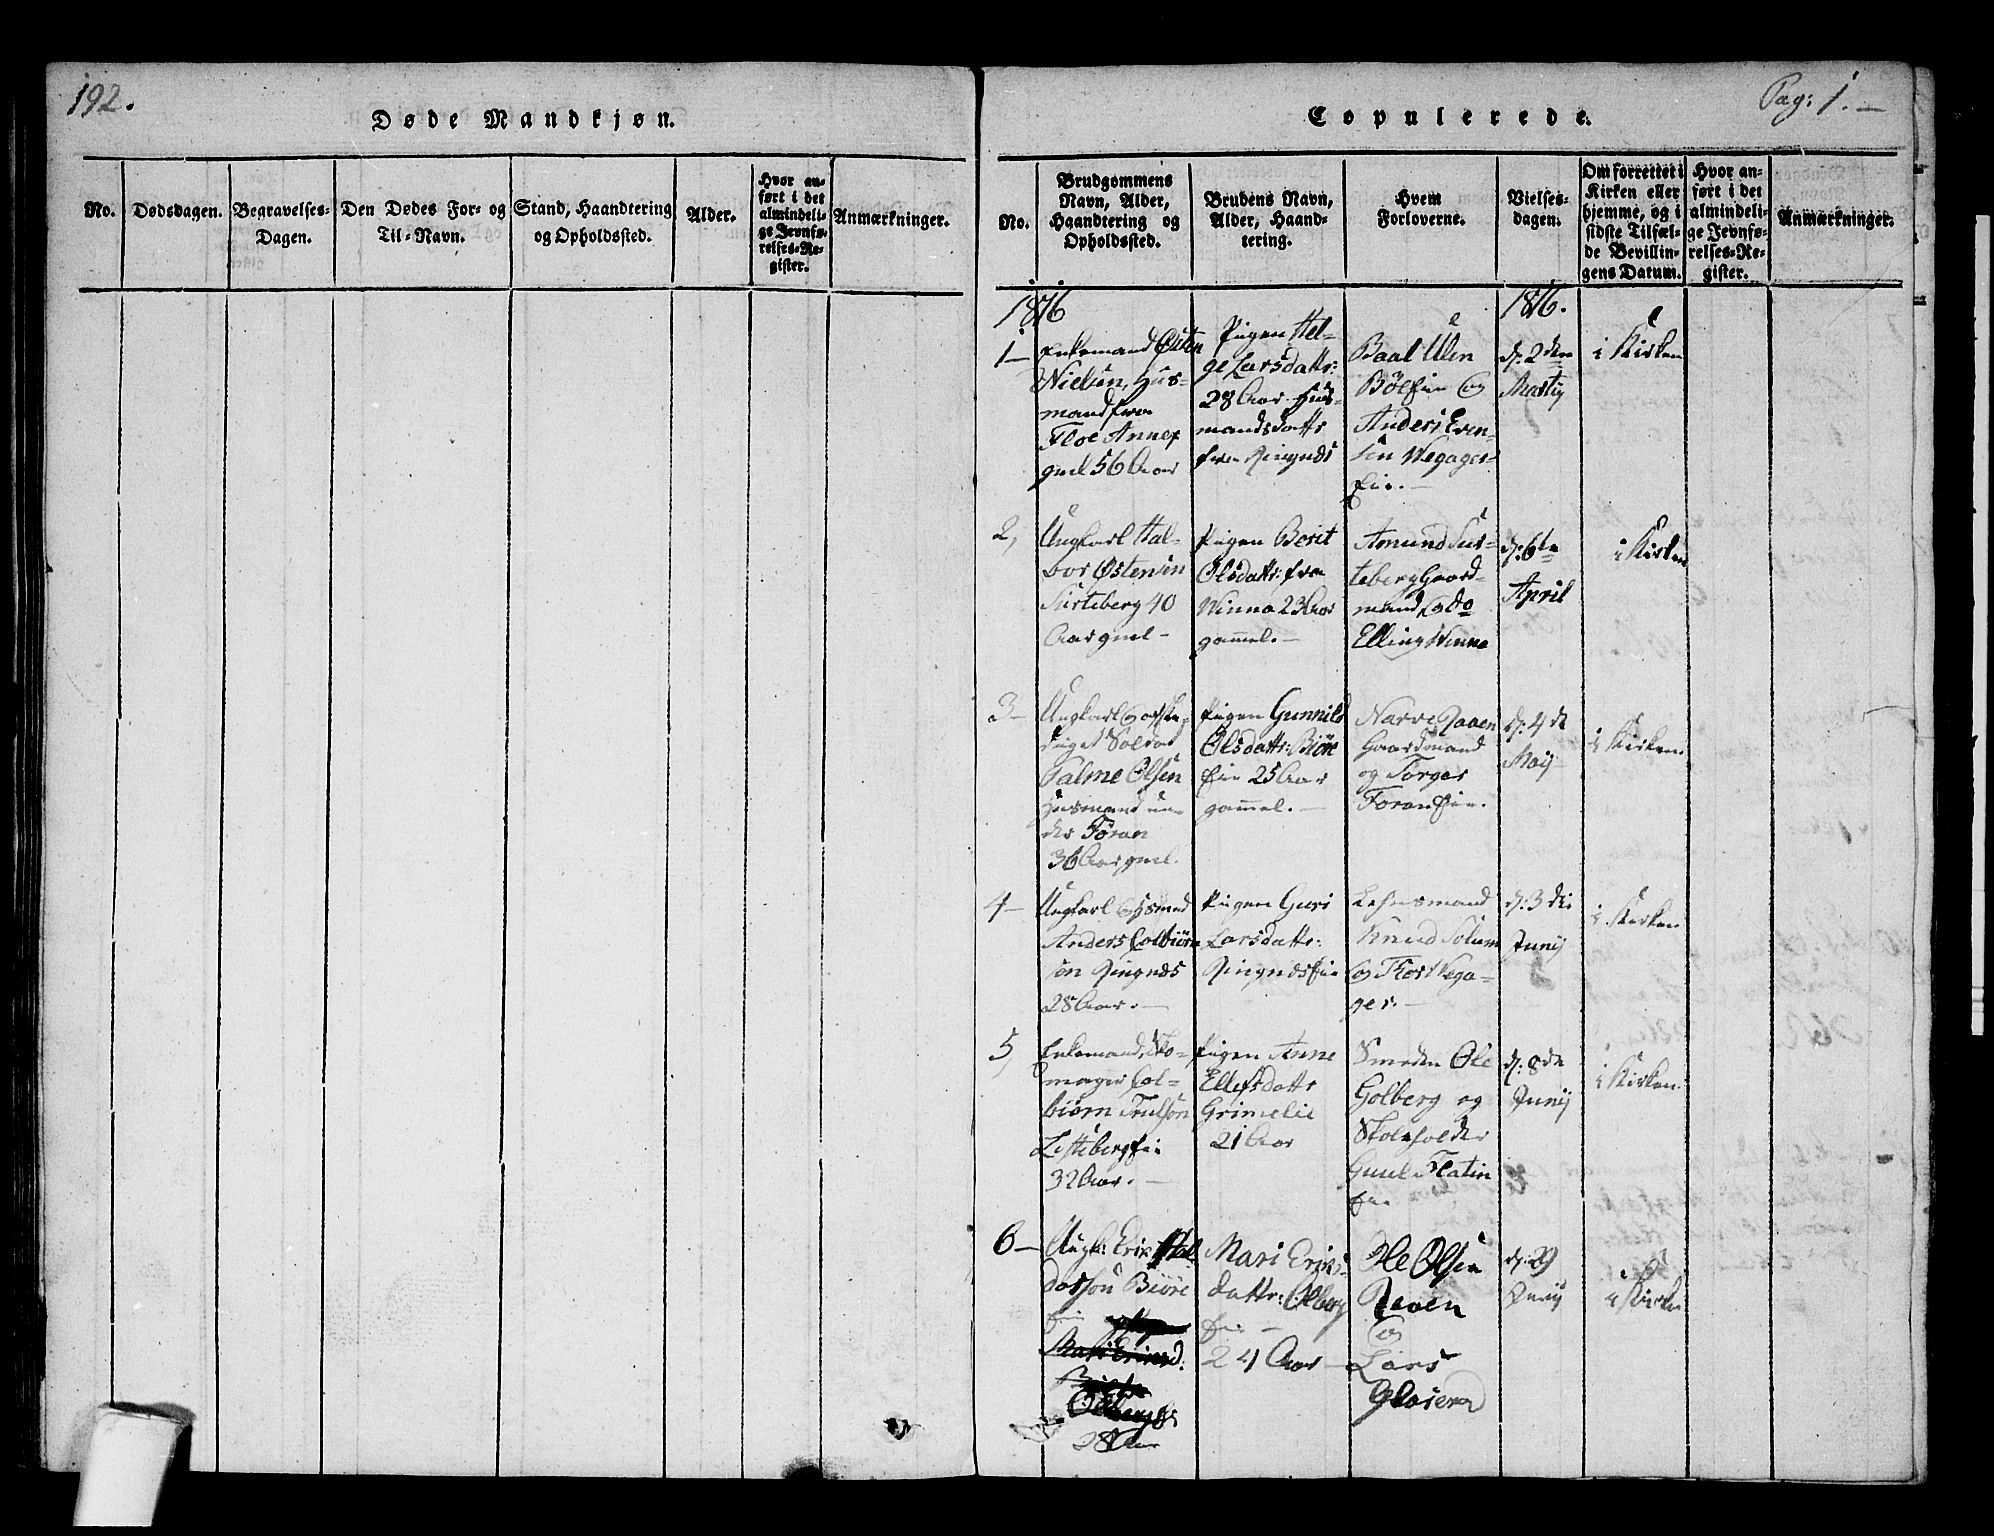 192.
Døde Mandkjøn.
No.
Dødsdagen.
Begravelses-
Dagen.
Den Dødes For- og
Til-Navn.
Stand, Haandtering
og Opholdssted.
Alder.
Hvor an-
ført i det
almindeli-
ge Jevnfø-
relses-Re-
gister.
Anmærkninger.
Pag: 1.-
Copulerede.
No.
Brudgommens
Navn, Alder,
Haandtering og
Opholdssted.
Brudens Navn,
Alder, Haand-
tering.
Hvem
Forloverne.
Vielses-
dagen.
Om forrettet i
Kirken eller
hjemme, og i
sidste Tilfæl-
de Bevillin-
gens Datum.
Hvor an-
ført i det
almindeli-
ge Jevnfø-
relses-Re-
gister.
Anmærkninger.
1816
1816.
1-
Enkemand Østen
Nielsen, Hus-
mand fra
Floe Annex
gml 56 Aar
Pigen Hel-
ge Larsdattr:
28 Aar Huus-
mandsdattr
fra Ringnes
Baal Ulen
Bølfin og
Anders Even-
sen Wegager-
Eie.-
d: 2den
Martij
i Kirken
2,
Ungkarl Hal-
vor Østensen
Surteberg 40
Aar gml-
Pigen Berit
Olsdattr: fra
Winna 23 Aar
gammel.-
Amund Sur-
teberg Gaard-
mand, og do
Elling Winna
d: 6te
April
i Kirken
3-
Ungkarl og afske-
diget Soldat
Palme Olsen
Huusmand un-
der Føran
36 Aar gml.
Pigen Gunnild
Olsdattr: Biøre
Eie 25 Aar
gammel.-
Narve Raaen
Gaardmand
og Torger
Foran Eie.
d: 4de
Maij
i Kirken
4-
Ungkarl og Husmd
Anders Colbiørn
sen Ringnes
28 Aar.-
Pigen Guri
Larsdattr:
Ringnes Eie
Lehnsmand
Knud Solum
og Thor Vega-
ger.-
d: 3die
Junij
i Kirken
5,
Enkemand, Sko-
mager Col-
biørn Trulsøn
Listeberg Eie
32 Aar.-
Pigen Anne
Ellefsdattr
Grimelie
21 Aar
Smeden Ole
Golberg og
Skoleholder
Guul Flatin
Eie
d: 8de
Junij
i Kirken
6-
Ungk: Erik Hal-
dorsøn Biøre
Eie
28 Aar
Mari Eriks-
dattr: Olberg
Eie -
24 Aar-
Ole Olsen
Raaen
og
Lars
d: 29
Junij
i Kirke